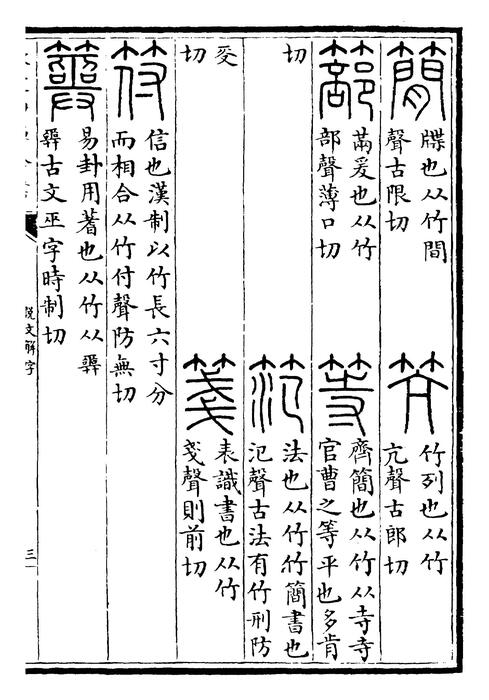 簡
牒也从竹間
聲古限切
笐
竹列也从竹
亢聲古郎切
篰
㒼爰也从竹
部聲薄口切
等
齊簡也从竹从寺寺
官曹之等平也多肯
切
笵
法也从竹竹簡書也
氾聲古法有竹刑防
切
箋
表識書也从竹
戔聲則前切
符
信也漢制以竹長六寸分
而相合从竹付聲防無切
筮
易卦用蓍也从竹从𢍮
𢍮古文巫字時制切
説文解字